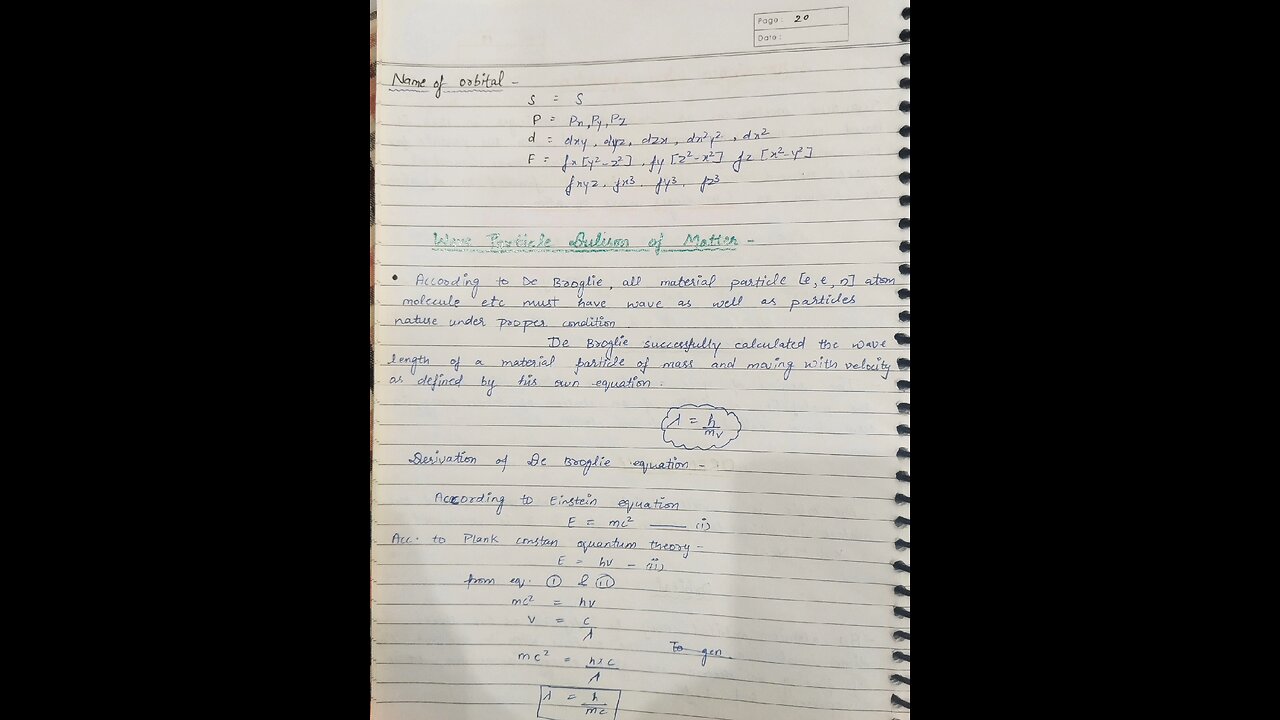 Page: 20
Date:
Name of orbital -
S = S
P = Px, Py, Pz
d = dxy, dyz, dzx, dx²y², dx²
F = fx[y²-z²], fy[z²-x²] fz[x²-y²]
fxyz, fx³, fy³, fz³
Wave Particle of Matter -
• According to De Broglie, all material particle [e, e, n] atom
molecule etc must have wave as well as particles
nature under proper condition.
De Broglie successfully calculated the wave
length of a material particle of mass and moving with velocity
as defined by his own equation.
λ = h/mv
Derivation of De Broglie equation -
According to Einstein equation
E = mc² —— (i)
Acc. to Plank constan quantum theory -
E = hv - (ii)
from eq. (i) & (ii)
mc² = hv
v = c/λ
To gen.
mc² = h×c/λ
λ = h/mc